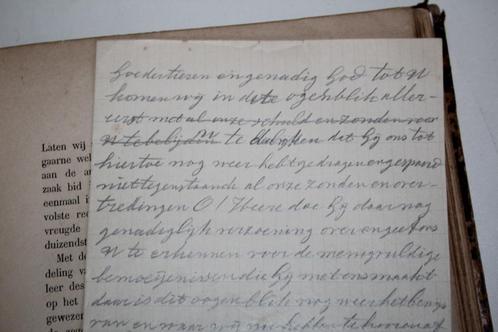 Goedertieren en genadig God tot U
komen wij in dete ogenblik aller-
eerst met al onze schuld en zonden voor
U te belijden U te danken dat Gij ons tot
hiertoe nog weer hebt gedragen en gespaard
niettegenstaande al onze zonden en over-
tredingen O! Heere doe Gij daar nog
genadiglijk verzoening over en geef ons
U te erkennen voor de menigvuldige
bemoeijenissen die Gij met ons maakt
daar is dit oogenblik nog weer het bewijs
van en waar wij
Laten wij
gaarne wel
aan de ar
zaak bid
eenmaal i
volste rec
vreugde
duizendst
Met de
deling va
leer des
op het
gewezer